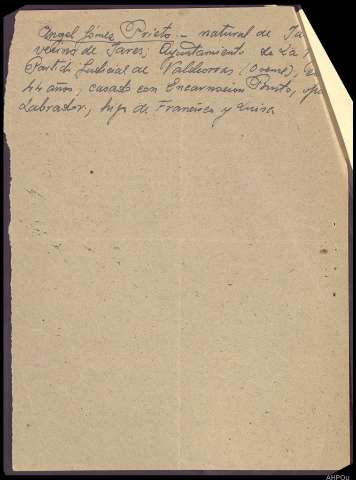 Angel Gomez Prieto - natural de Ja
vecino de Jares; Ayuntamiento de La
Partido Judicial de Valdeorras (Orense), de
44 años, casado con Encarnacion Prieto,
Labrador, hijo de Francisco y Luisa
AHPOu